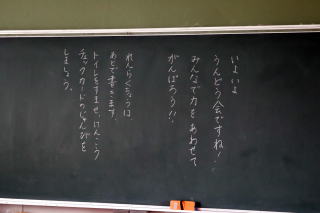 いよいよ
うんどう会ですね!
みんなで力をあわせて
がんばろう!!
れんらくちょうは
あとで書きます。
トイレをすませ、けんこう
チェックカードのじゅんびを
しましょう。